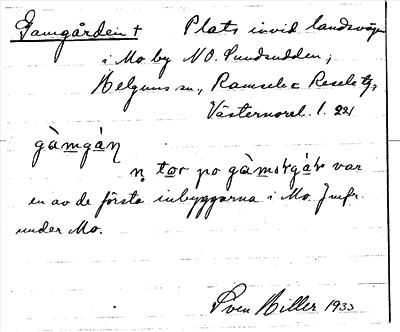 Gamgården † Plats invid landsvägen
i Mo by NO. Sundsudden,
Helgums sn, Ramsele o Resele tg,
Västernorrl. l. 221
gàmgáɳ
tor po gàm gá var
en av de första inbyggarna i Mo. Jmfr.
under Mo.
Sven Hiller 1933